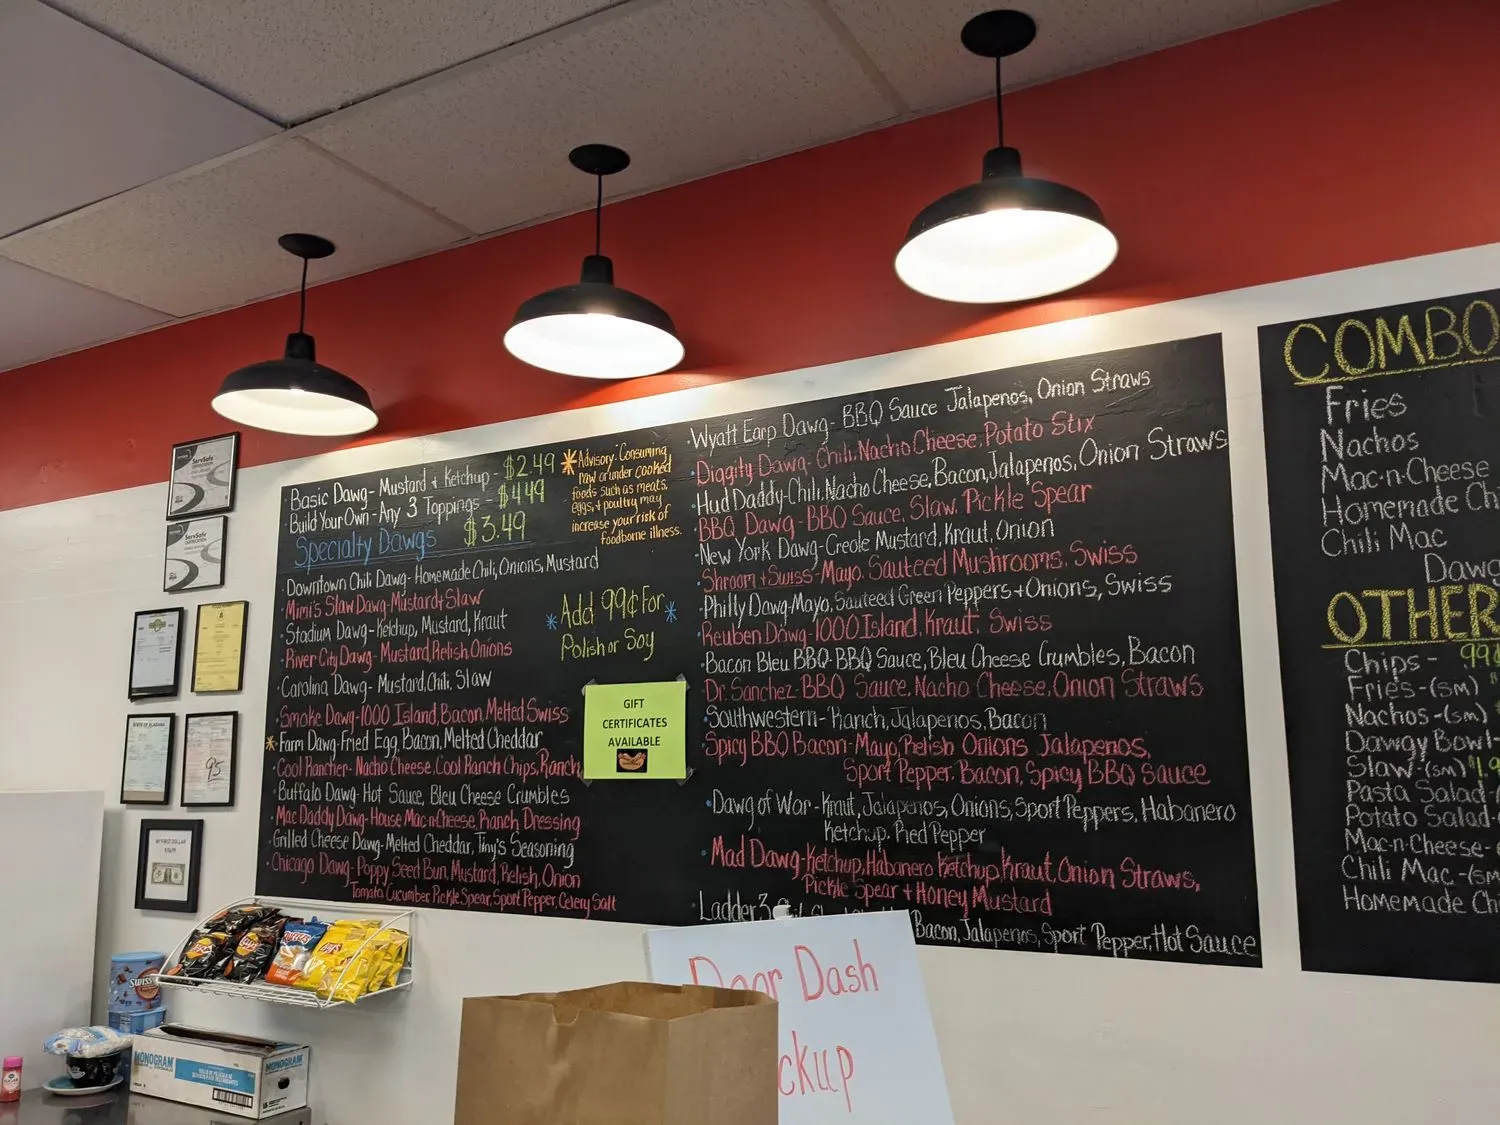 Basic Dawg- Mustard + Ketchup - $2.49
Build Your Own - Any 3 Toppings - $4.49
Specialty Dawgs $3.49
Downtown Chili Dawg- Homemade Chili, Onions, Mustard
Mimi's Slaw Dawg- Mustard + Slaw
Stadium Dawg- Ketchup, Mustard, Kraut
River City Dawg- Mustard, Relish, Onions
Carolina Dawg- Mustard, Chili, Slaw
Smoke Dawg- 1000 Island, Bacon, Melted Swiss
Farm Dawg- Fried Egg, Bacon, Melted Cheddar
Cool Rancher- Nacho Cheese, Cool Ranch Chips, Ranch
Buffalo Dawg- Hot Sauce, Bleu Cheese Crumbles
Mac Daddy Dawg- House Mac-n-Cheese, Ranch, Dressing
Grilled Cheese Dawg- Melted Cheddar, Tiny's Seasoning
Chicago Dawg- Poppy Seed Bun, Mustard, Relish, Onion
Tomato, Cucumber, Pickle Spear, Sport Pepper, Celery Salt
Advisory- Consuming
raw or under cooked
foods such as meats,
eggs, + poultry may
increase your risk of
foodborne illness.
Add 99¢ For
Polish or Soy
GIFT
CERTIFICATES
AVAILABLE
Wyatt Earp Dawg- BBQ Sauce Jalapenos, Onion Straws
Diggity Dawg- Chili, Nacho Cheese, Potato Stix
Hud Daddy- Chili, Nacho Cheese, Bacon, Jalapenos, Onion Straws
BBQ Dawg- BBQ Sauce, Slaw, Pickle Spear
New York Dawg- Creole Mustard, Kraut, Onion
Shroom + Swiss- Mayo, Sauteed Mushrooms, Swiss
Philly Dawg- Mayo, Sauteed Green Peppers + Onions, Swiss
Reuben Dawg- 1000 Island, Kraut, Swiss
Bacon Bleu BBQ- BBQ Sauce, Bleu Cheese Crumbles, Bacon
Dr. Sanchez- BBQ Sauce, Nacho Cheese, Onion Straws
Southwestern- Ranch, Jalapenos, Bacon
Spicy BBQ Bacon- Mayo, Relish Onions Jalapenos,
Sport Pepper, Bacon, Spicy BBQ Sauce
Dawg of War- Kraut, Jalapenos, Onions, Sport Peppers, Habanero
Ketchup, Red Pepper
Mad Dawg- Ketchup, Habanero Ketchup, Kraut, Onion Straws,
Pickle Spear + Honey Mustard
Ladder 3
Bacon, Jalapenos, Sport Pepper, Hot Sauce
COMBO
Fries
Nachos
Mac-n-Cheese
Homemade Ch
Chili Mac
Dawg
OTHER
Chips- 99¢
Fries-(sm)
Nachos-(sm)
Dawgy Bowl-
Slaw-(sm)
Pasta Salad-
Potato Salad-
Mac-n-Cheese-
Chili Mac-(sm
Homemade Chi
ServSafe
CERTIFICATION
ServSafe
CERTIFICATION
STATE OF ALABAMA
95
MY FIRST DOLLAR
Lay's
Lay's
RUFFLES
Lay's
SWISS
MONOGRAM
MONOGRAM
Door Dash
ckup